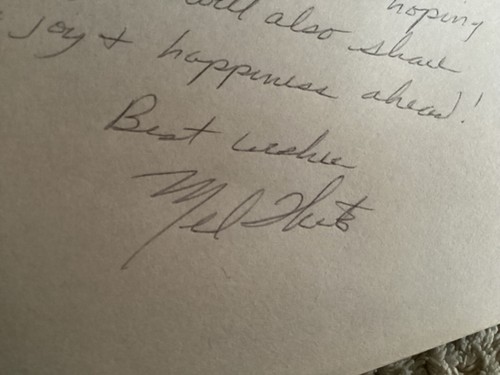 hoping
will also share
joy + happiness ahead!
Best wishes
Mel